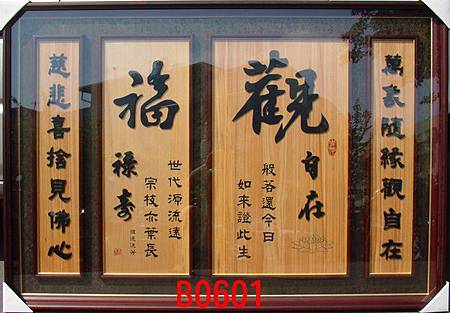 萬隨緣觀自在
觀
自在
般若還今日
如來證此生
福
祿壽
世代源流遠
宗枝亦葉長
慈悲喜捨見佛心
B0601